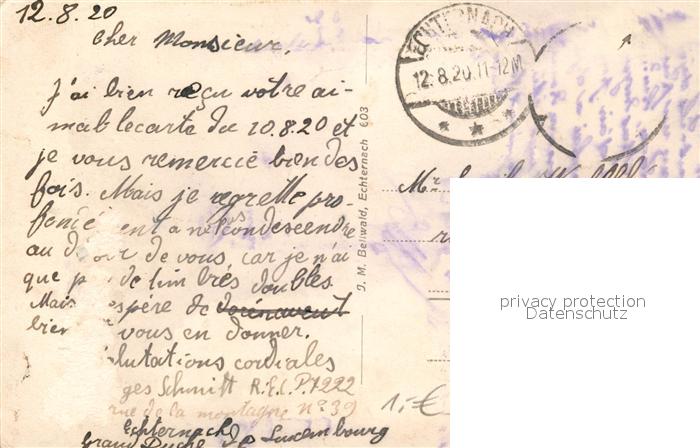 12.8.20
Cher Monsieur,
J'ai bien reçu votre ai-
mablecarte du 10.8.20 et
je vous remercie bien des
fois. Mais je regrette pro-
ent a ne condescendre
au de vous, car je n'ai
que de timbres doubles
Mais père de
bien vous en donner.
lutations cordiales
ges Schmitt R.E.L. P.1222
rue de la montagne n° 39
Echternach
Grand Duché de Luxembourg
J. M. Bellwald, Echternach 603
ECHTERNACH
12.8.20.11-12M
Mr
1,- €
privacy protection
Datenschutz